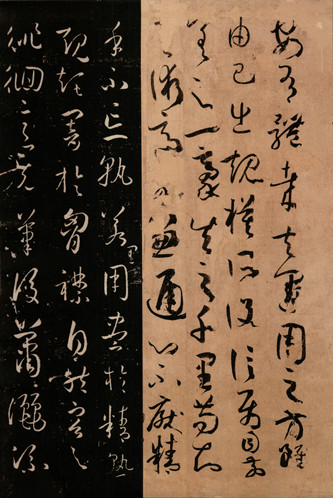 安有體哉夫運用之方雖
由己出規模所設信屬目前
差之一豪失之千里苟知
其術適可兼通心不厭精
手不忘熟若運用盡於精熟
規矩闇於胸襟自然容與
徘徊意先筆後瀟灑流